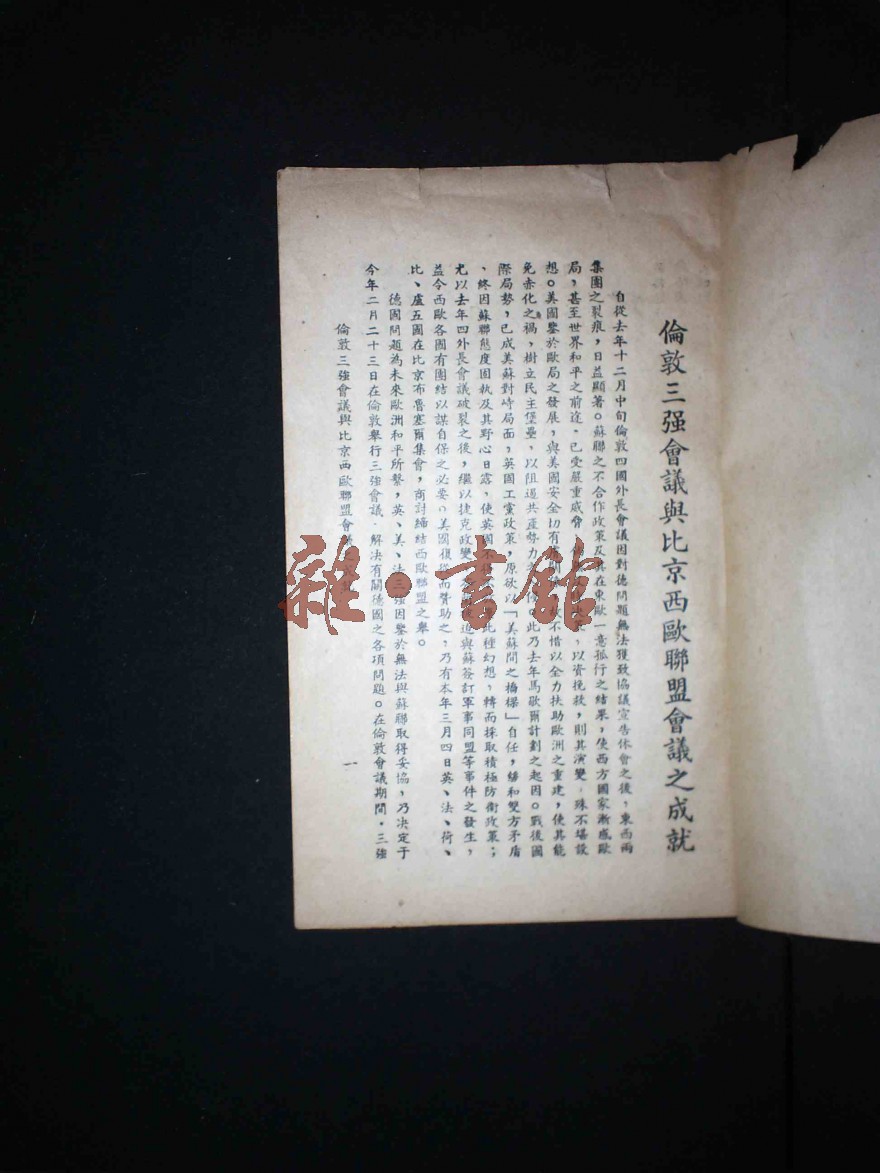 倫敦三强會議與比京西歐聯盟會議之成就
自從去年十二月中旬倫敦四國外長會議因對德問題無法獲致協議宣告休會之後，東西兩
集團之裂痕，日益顯著。蘇聯之不合作政策及其在東歐一意孤行之結果，使西方國家漸感歐
局，甚至世界和平之前途，已受嚴重威脅，以資挽救，則其演變，殊不堪設
想。美國鑒於歐局之發展，與美國安全切有不惜以全力扶助歐洲之重建，使其能
免赤化之禍，樹立民主堡壘，以阻遏共產勢力此乃去年馬歇爾計劃之起因。戰後國
際局勢，已成美蘇對峙局面，英國工黨政策，原欲以「美蘇間之橋樑」自任，緩和雙方矛盾
、終因蘇聯態度固執及其野心日露，使英國不此種幻想，轉而採取積極防衛政策；
尤以去年四外長會議破裂之後，繼以捷克政變迫與蘇簽訂軍事同盟等事件之發生，
益令西歐各國有團結以謀自保之必要。美國復從而贊助之，乃有本年三月四日英、法、荷、
比、盧五國在比京布魯塞爾集會，商討締結西歐聯盟之舉。
德國問題為未來歐洲和平所繫，英、美、法三強因鑒於無法與蘇聯取得妥協，乃決定于
今年二月二十三日在倫敦舉行三強會議，解決有關德國之各項問題。在倫敦會議期間，三強
倫敦三強會議與比京西歐聯盟會
一
雜·書館